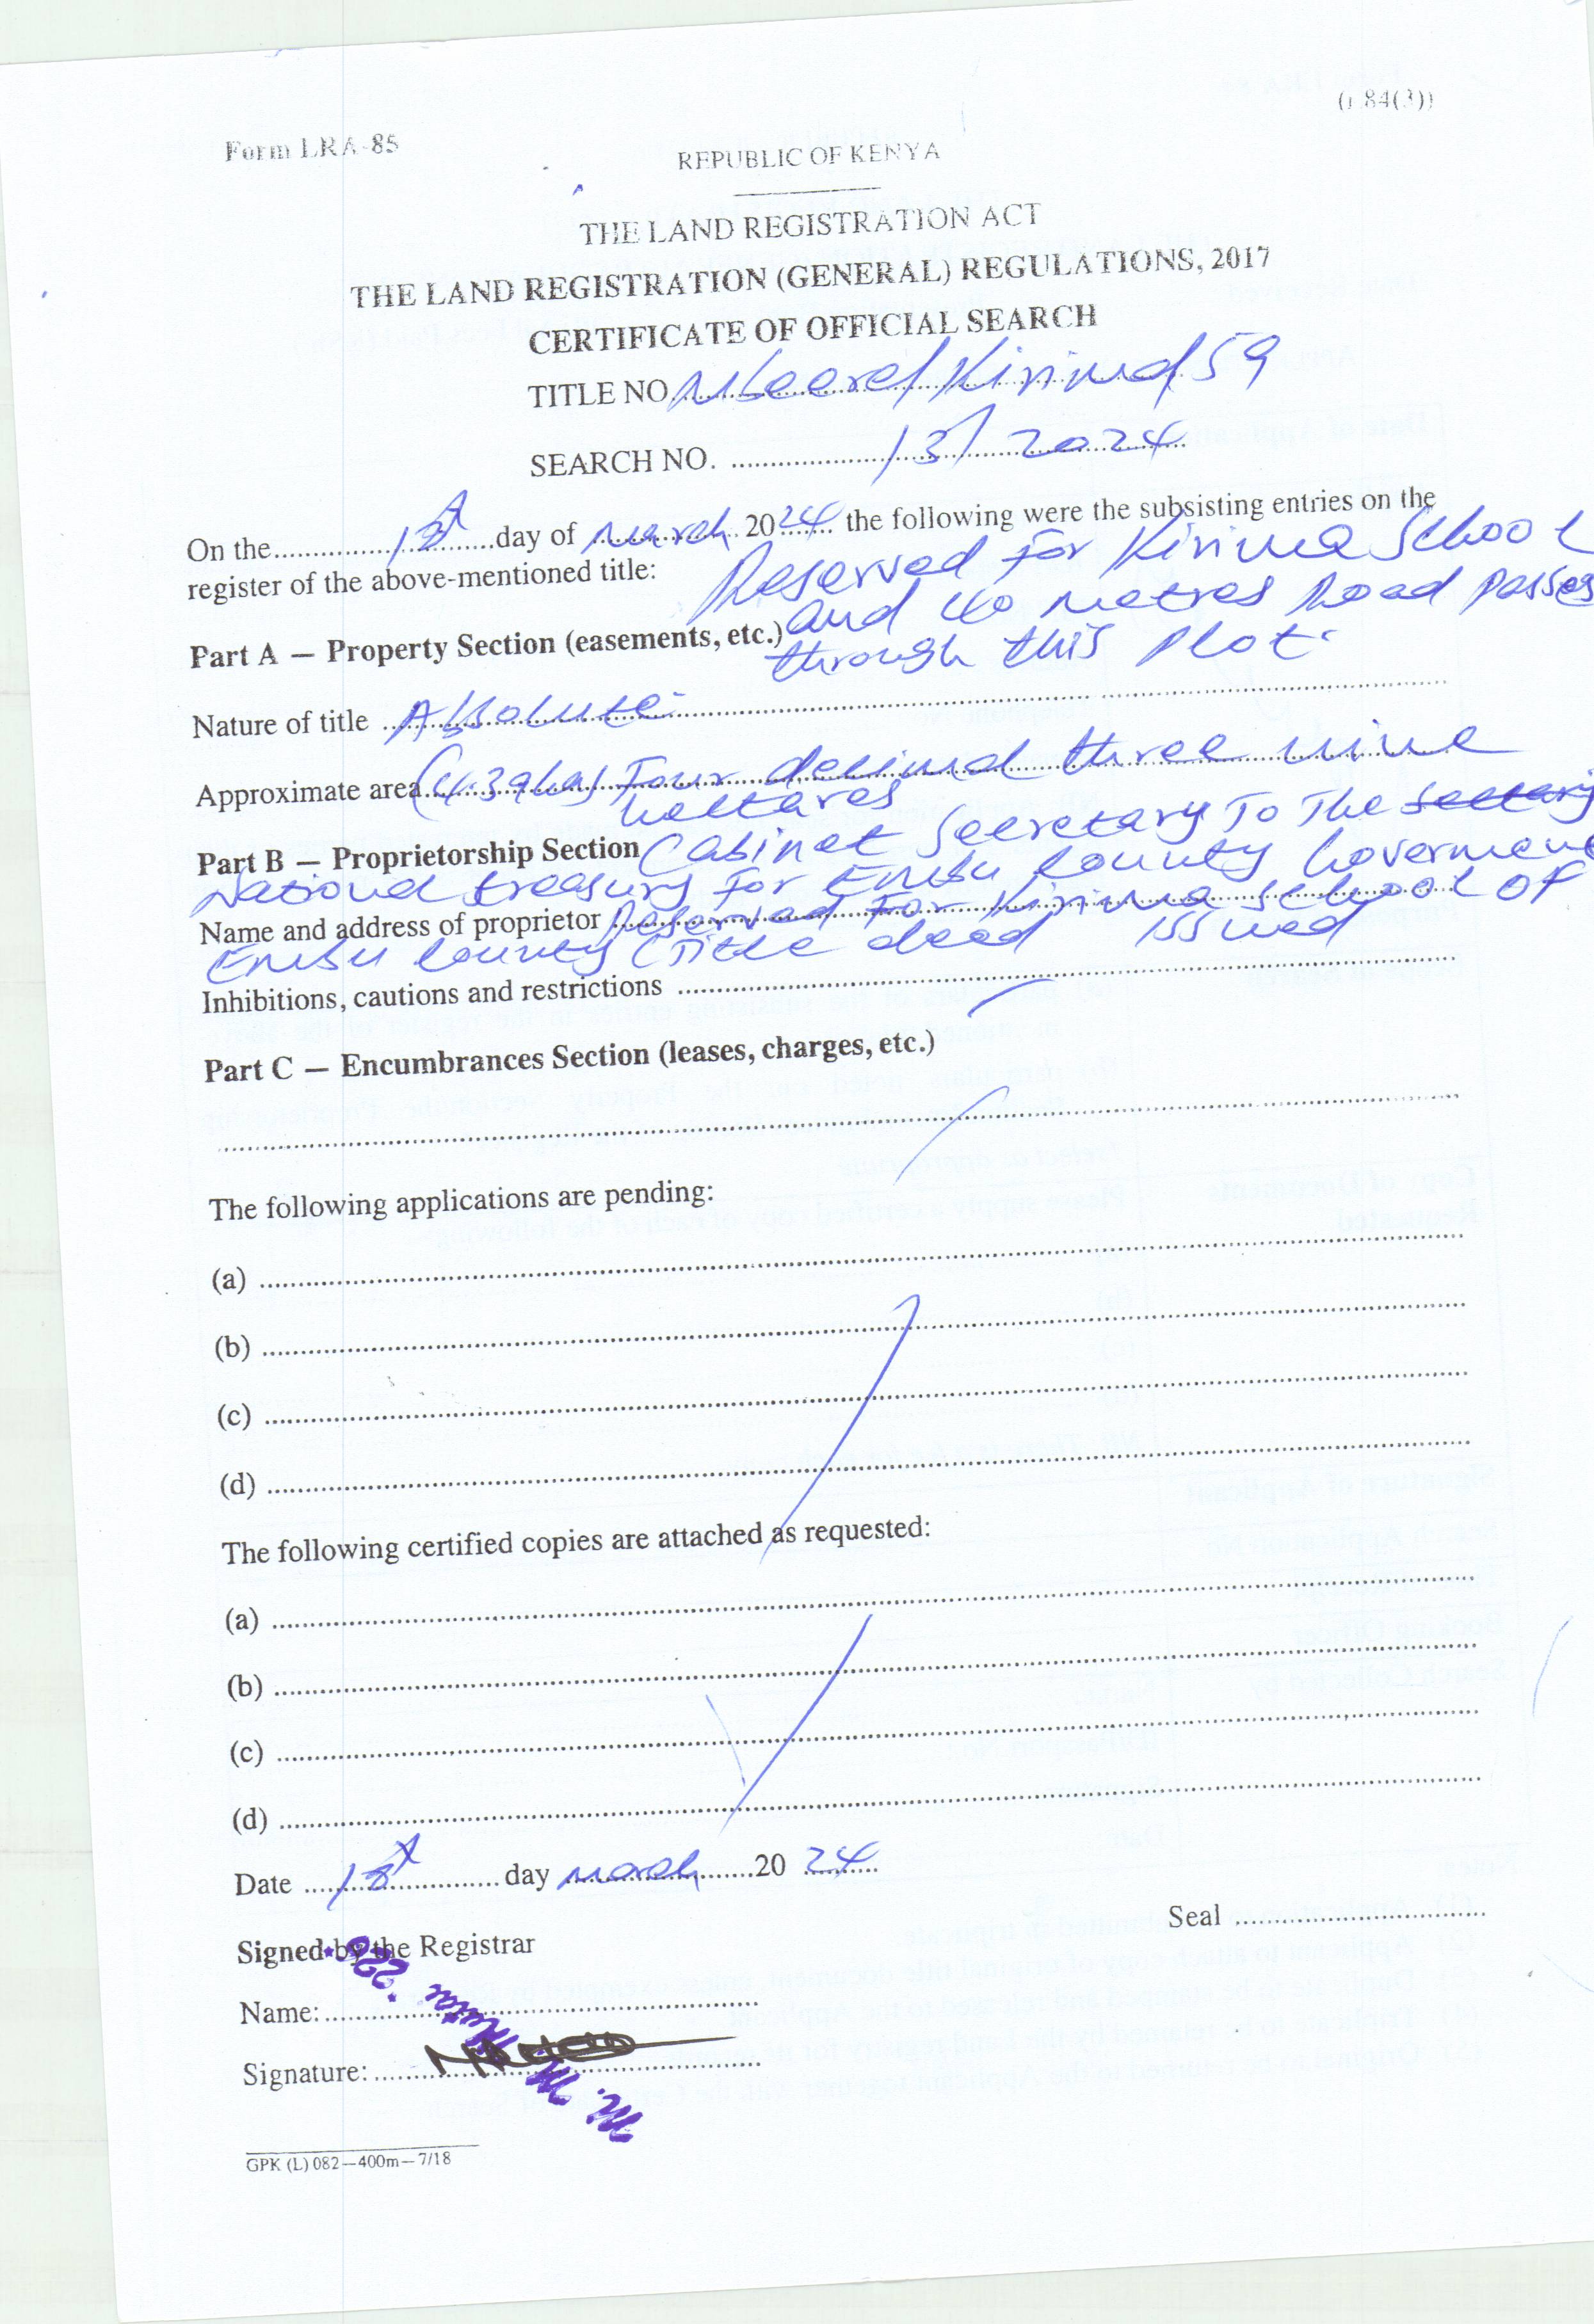 (r 84(3))
Form LRA-85
REPUBLIC OF KENYA
THE LAND REGISTRATION ACT
THE LAND REGISTRATION (GENERAL) REGULATIONS, 2017
CERTIFICATE OF OFFICIAL SEARCH
TITLE NO. Mbeere/Kirima/59
SEARCH NO. 13/2024
On the day of March 2024 the following were the subsisting entries on the
register of the above-mentioned title:
Reserved For Kirima School
and 40 metres Road Passes
through this Plot.
Part A — Property Section (easements, etc.)
Nature of title Absolute
Approximate area (4.39ha) Four decimal three nine
hectares
Part B — Proprietorship Section Cabinet Secretary To The
National treasury For Embu County Goverment
Name and address of proprietor Reserved For Kirima school OF
Embu County (Title deed issued
Inhibitions, cautions and restrictions
Part C — Encumbrances Section (leases, charges, etc.)
The following applications are pending:
(a)
(b)
(c)
(d)
The following certified copies are attached as requested:
(a)
(b)
(c)
(d)
Date day March 20 24
Seal
Signed by the Registrar
Name:
Signature:
GPK (L) 082—400m—7/18